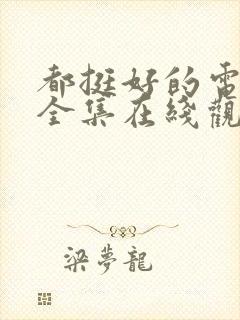 都挺好的電
全集在綫觀
梁夢龍